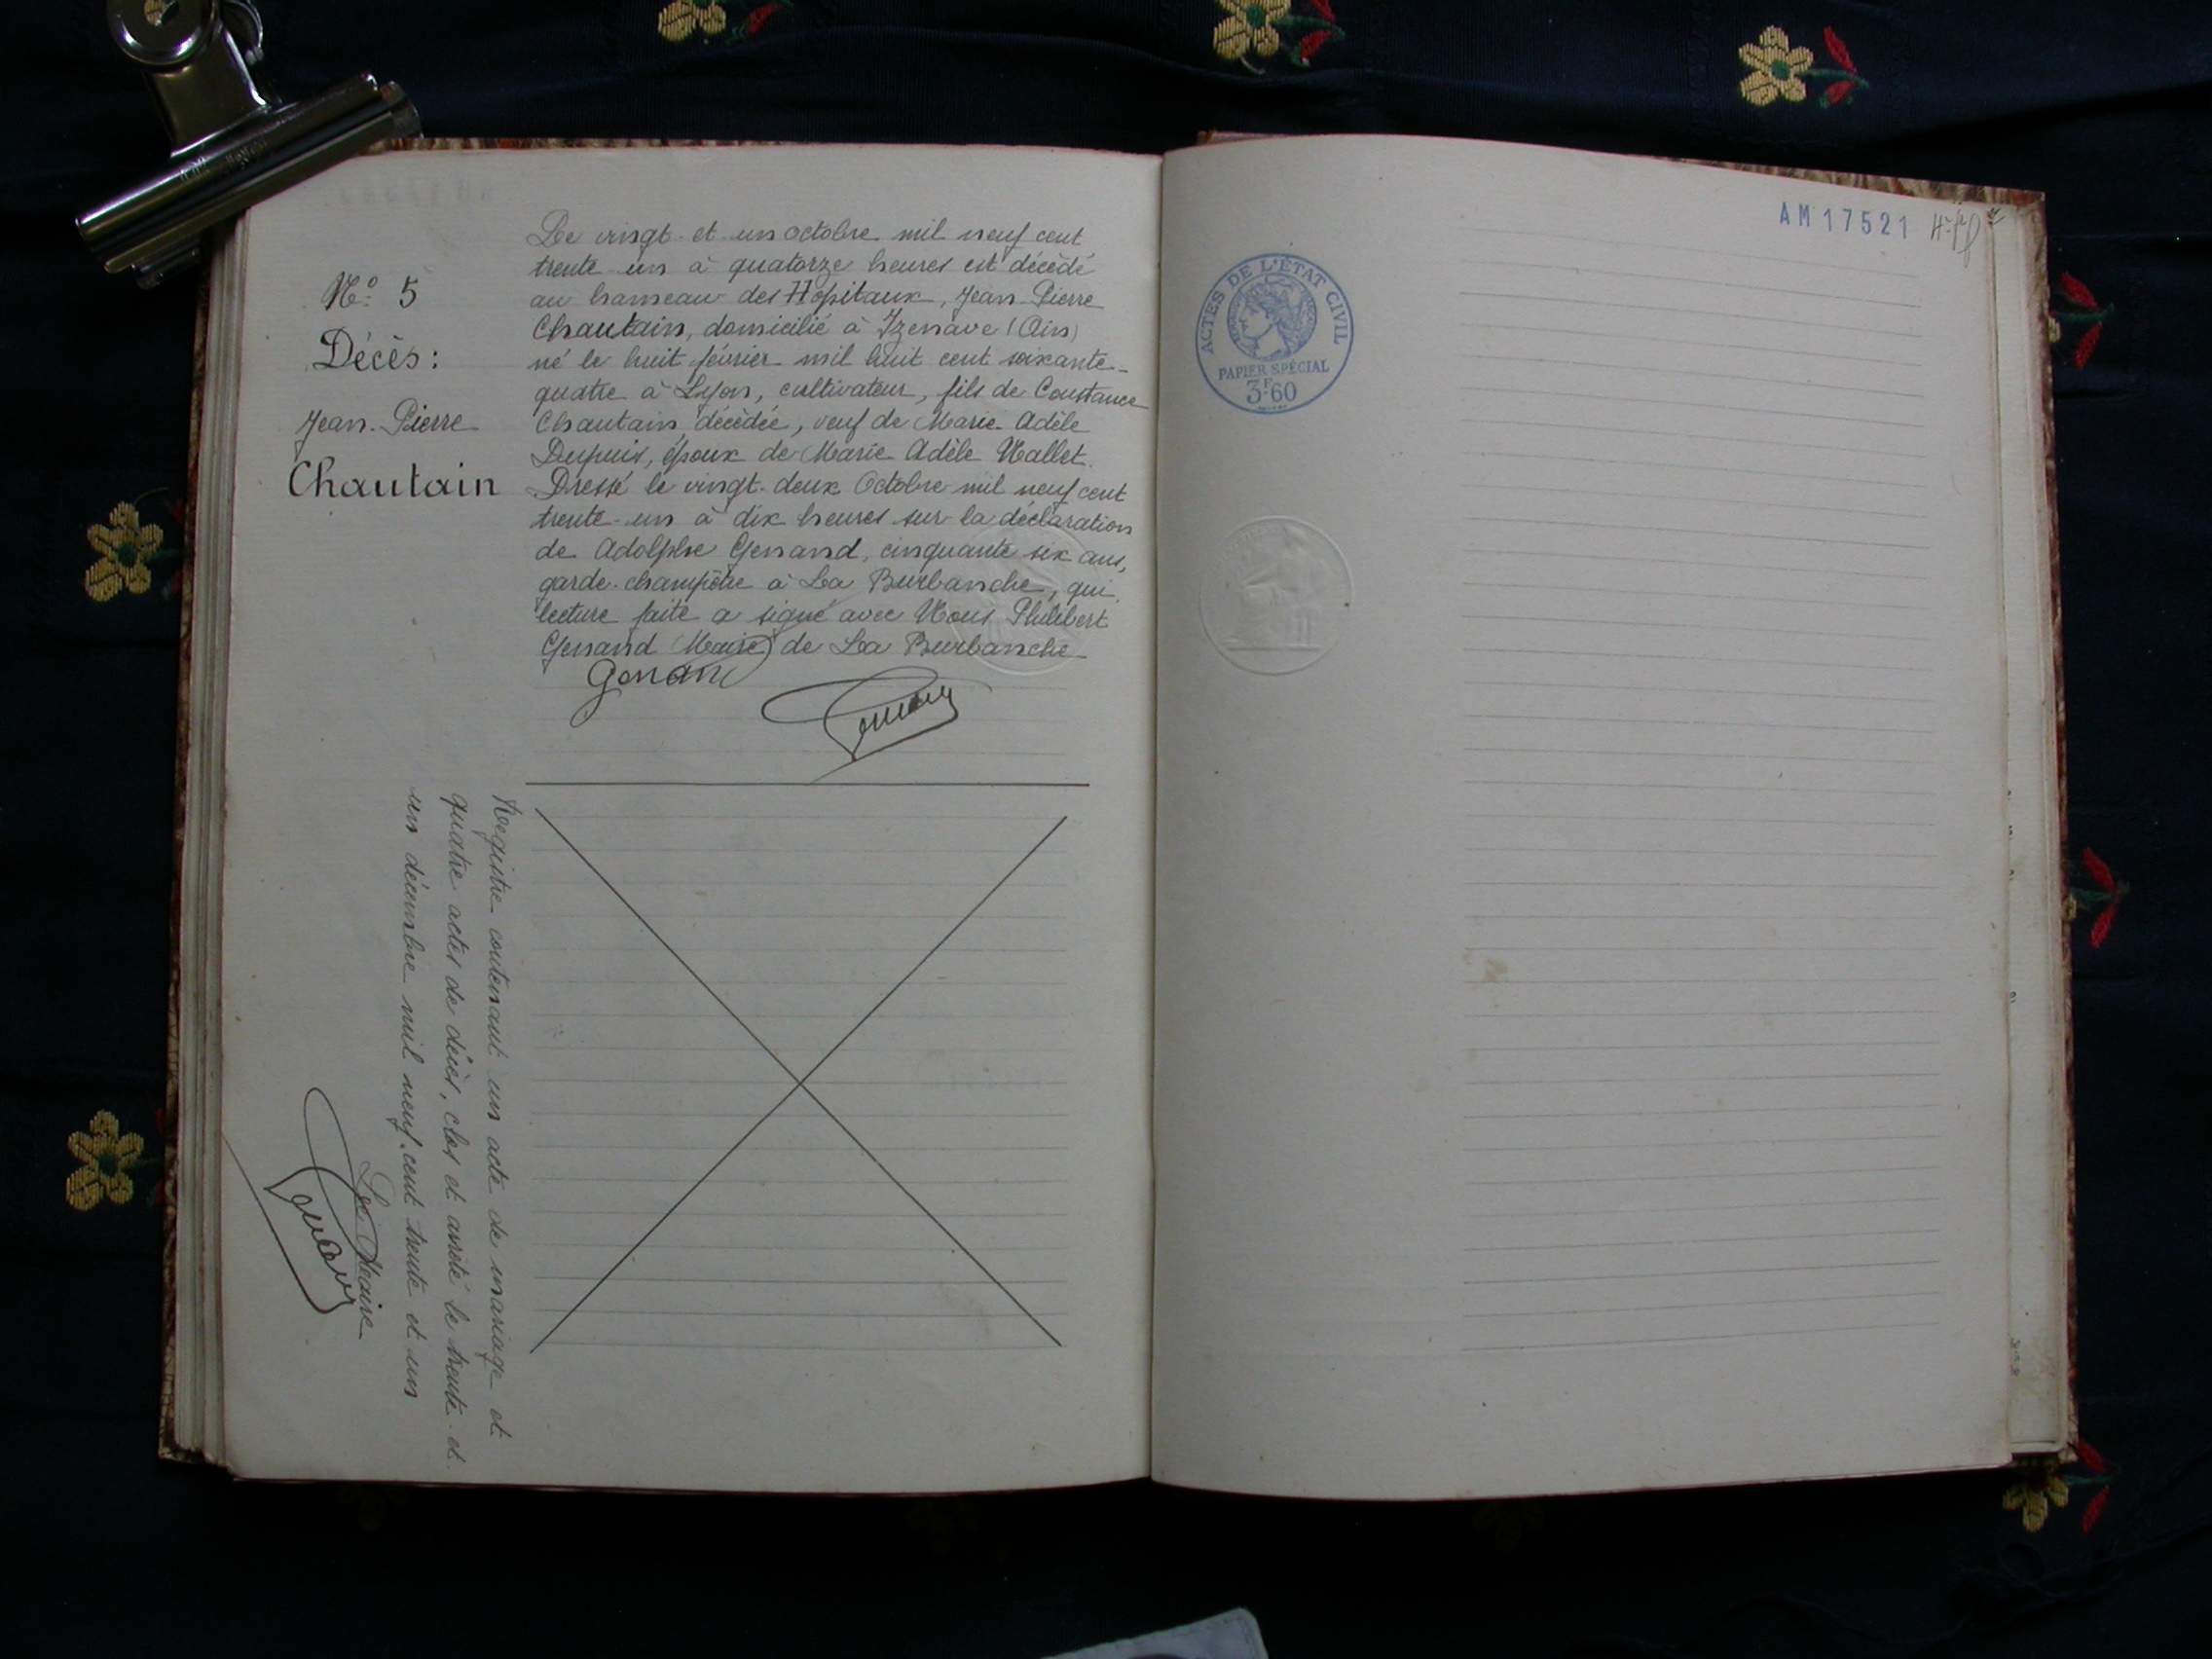 Nº 5
Décès:
Jean-Pierre
Chautain
Le vingt-et-un octobre mil neuf cent
trente un à quatorze heures est décédé
au hameau des Hôpitaux, Jean-Pierre
Chautain, domicilié à Izenave (Ain)
né le huit février mil huit cent soixante-
quatre à Lyon, cultivateur, fils de Constance
Chautain décédée, veuf de Marie-Adèle
Dupuis, époux de Marie Adèle Mallet.
Dressé le vingt-deux Octobre mil neuf cent
trente-un à dix heures sur la déclaration
de Adolphe Genand, cinquante six ans,
garde-champêtre à La Burbanche, qui,
lecture faite a signé avec Nous Philibert
Genand Maire de La Burbanche
Genand
Genand
Registre contenant un acte de mariage et
quatre actes de décès, clos et arrêté le trente-et
un décembre mil neuf-cent trente et un
Le Maire
Genand
AM17521
ACTES DE L'ÉTAT CIVIL
PAPIER SPÉCIAL
3F60